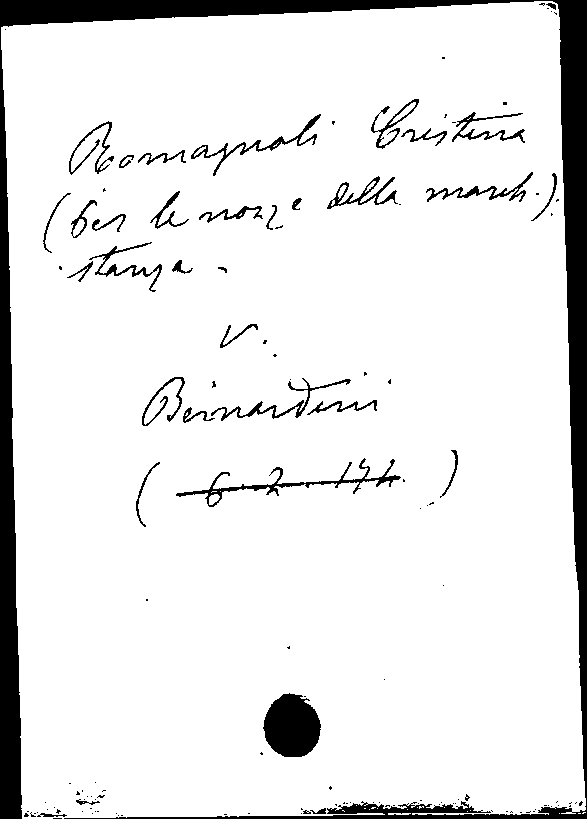 Romagnoli Cristina
(per le nozze della march.)
stanza -
V.
Bernardini
( 6. 2. 174. )